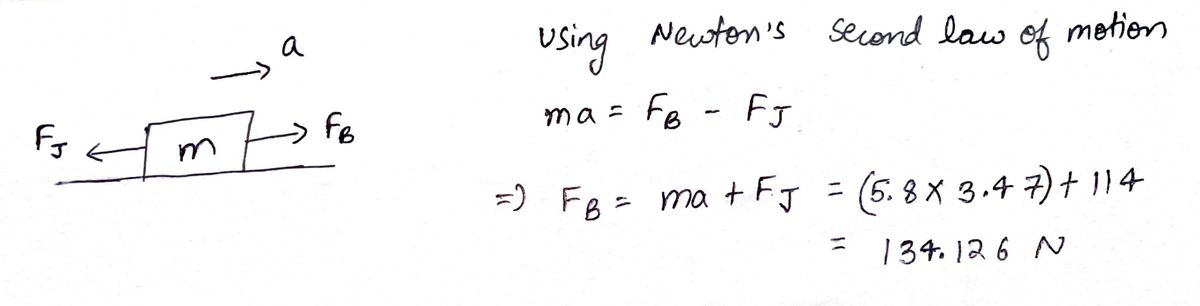 a
F_J
m
F_B
Using Newton's second law of motion
ma = F_B - F_J
=) F_B = ma + F_J = (5.8 X 3.47) + 114
= 134.126 N